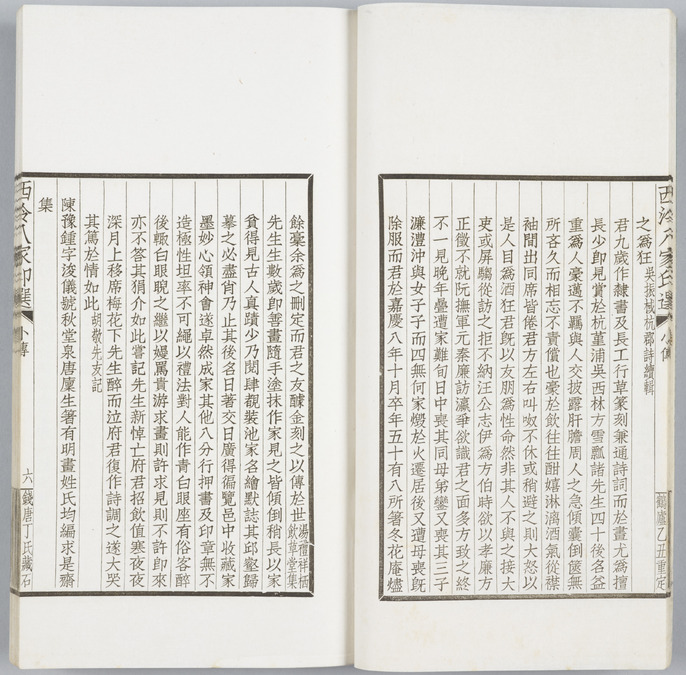 西泠八家印選
小傳
鶴廬乙丑重定
之為狂吳振棫杭郡詩續輯
君九歲作隸書及長工行草篆刻兼通詩詞而於畫尤為擅
長少卽見賞於杭菫浦吳西林方雪瓢諸先生四十後名益
重為人豪邁不羈與人交披露肝膽周人之急傾囊倒篋無
所吝久而相忘不責償也豪於飲往往酣嬉淋漓酒氣從襟
袖間出同席皆倦君方左右叫呶不休或稍避之則大怒以
是人目為酒狂君旣以友朋為性命然非其人不與之接大
吏或屏騶從訪之拒不納汪公志伊為方伯時欲以孝廉方
正徵不就阮撫軍元秦廉訪瀛爭欲識君之面多方致之終
不一見晚年疊遭家難旬日中喪其同母弟鑾又喪其三子
濂澧沖與女子子而四無何家燬於火遷居後又遭母喪旣
除服而君於嘉慶八年十月卒年五十有八所箸冬花庵燼
餘稾余為之刪定而君之友醵金刻之以傳於世湯禮祥栖飲草堂集
先生生數歲卽善畫隨手塗抹作家見之皆傾倒稍長以家
貧得見古人真蹟少乃閱肆覩裝池家名繪默誌其邱壑歸
摹之必盡肖乃止其後名日著交日廣得徧覽邑中收藏家
墨妙心領神會遂卓然成家其他八分行押書及印章無不
造極性坦率不可繩以禮法對人能作青白眼座有俗客醉
後輒白眼睨之繼以嫚罵貴游求畫則許求見則不許卽來
亦不答其狷介如此嘗記先生新悼亡府君招飲值寒夜夜
深月上移席梅花下先生醉而泣府君復作詩調之遂大哭
其篤於情如此胡敬先友記
陳豫鍾字浚儀號秋堂泉唐廩生箸有明畫姓氏均編求是齋
集
西泠八家印選
小傳
六
錢唐丁氏藏石